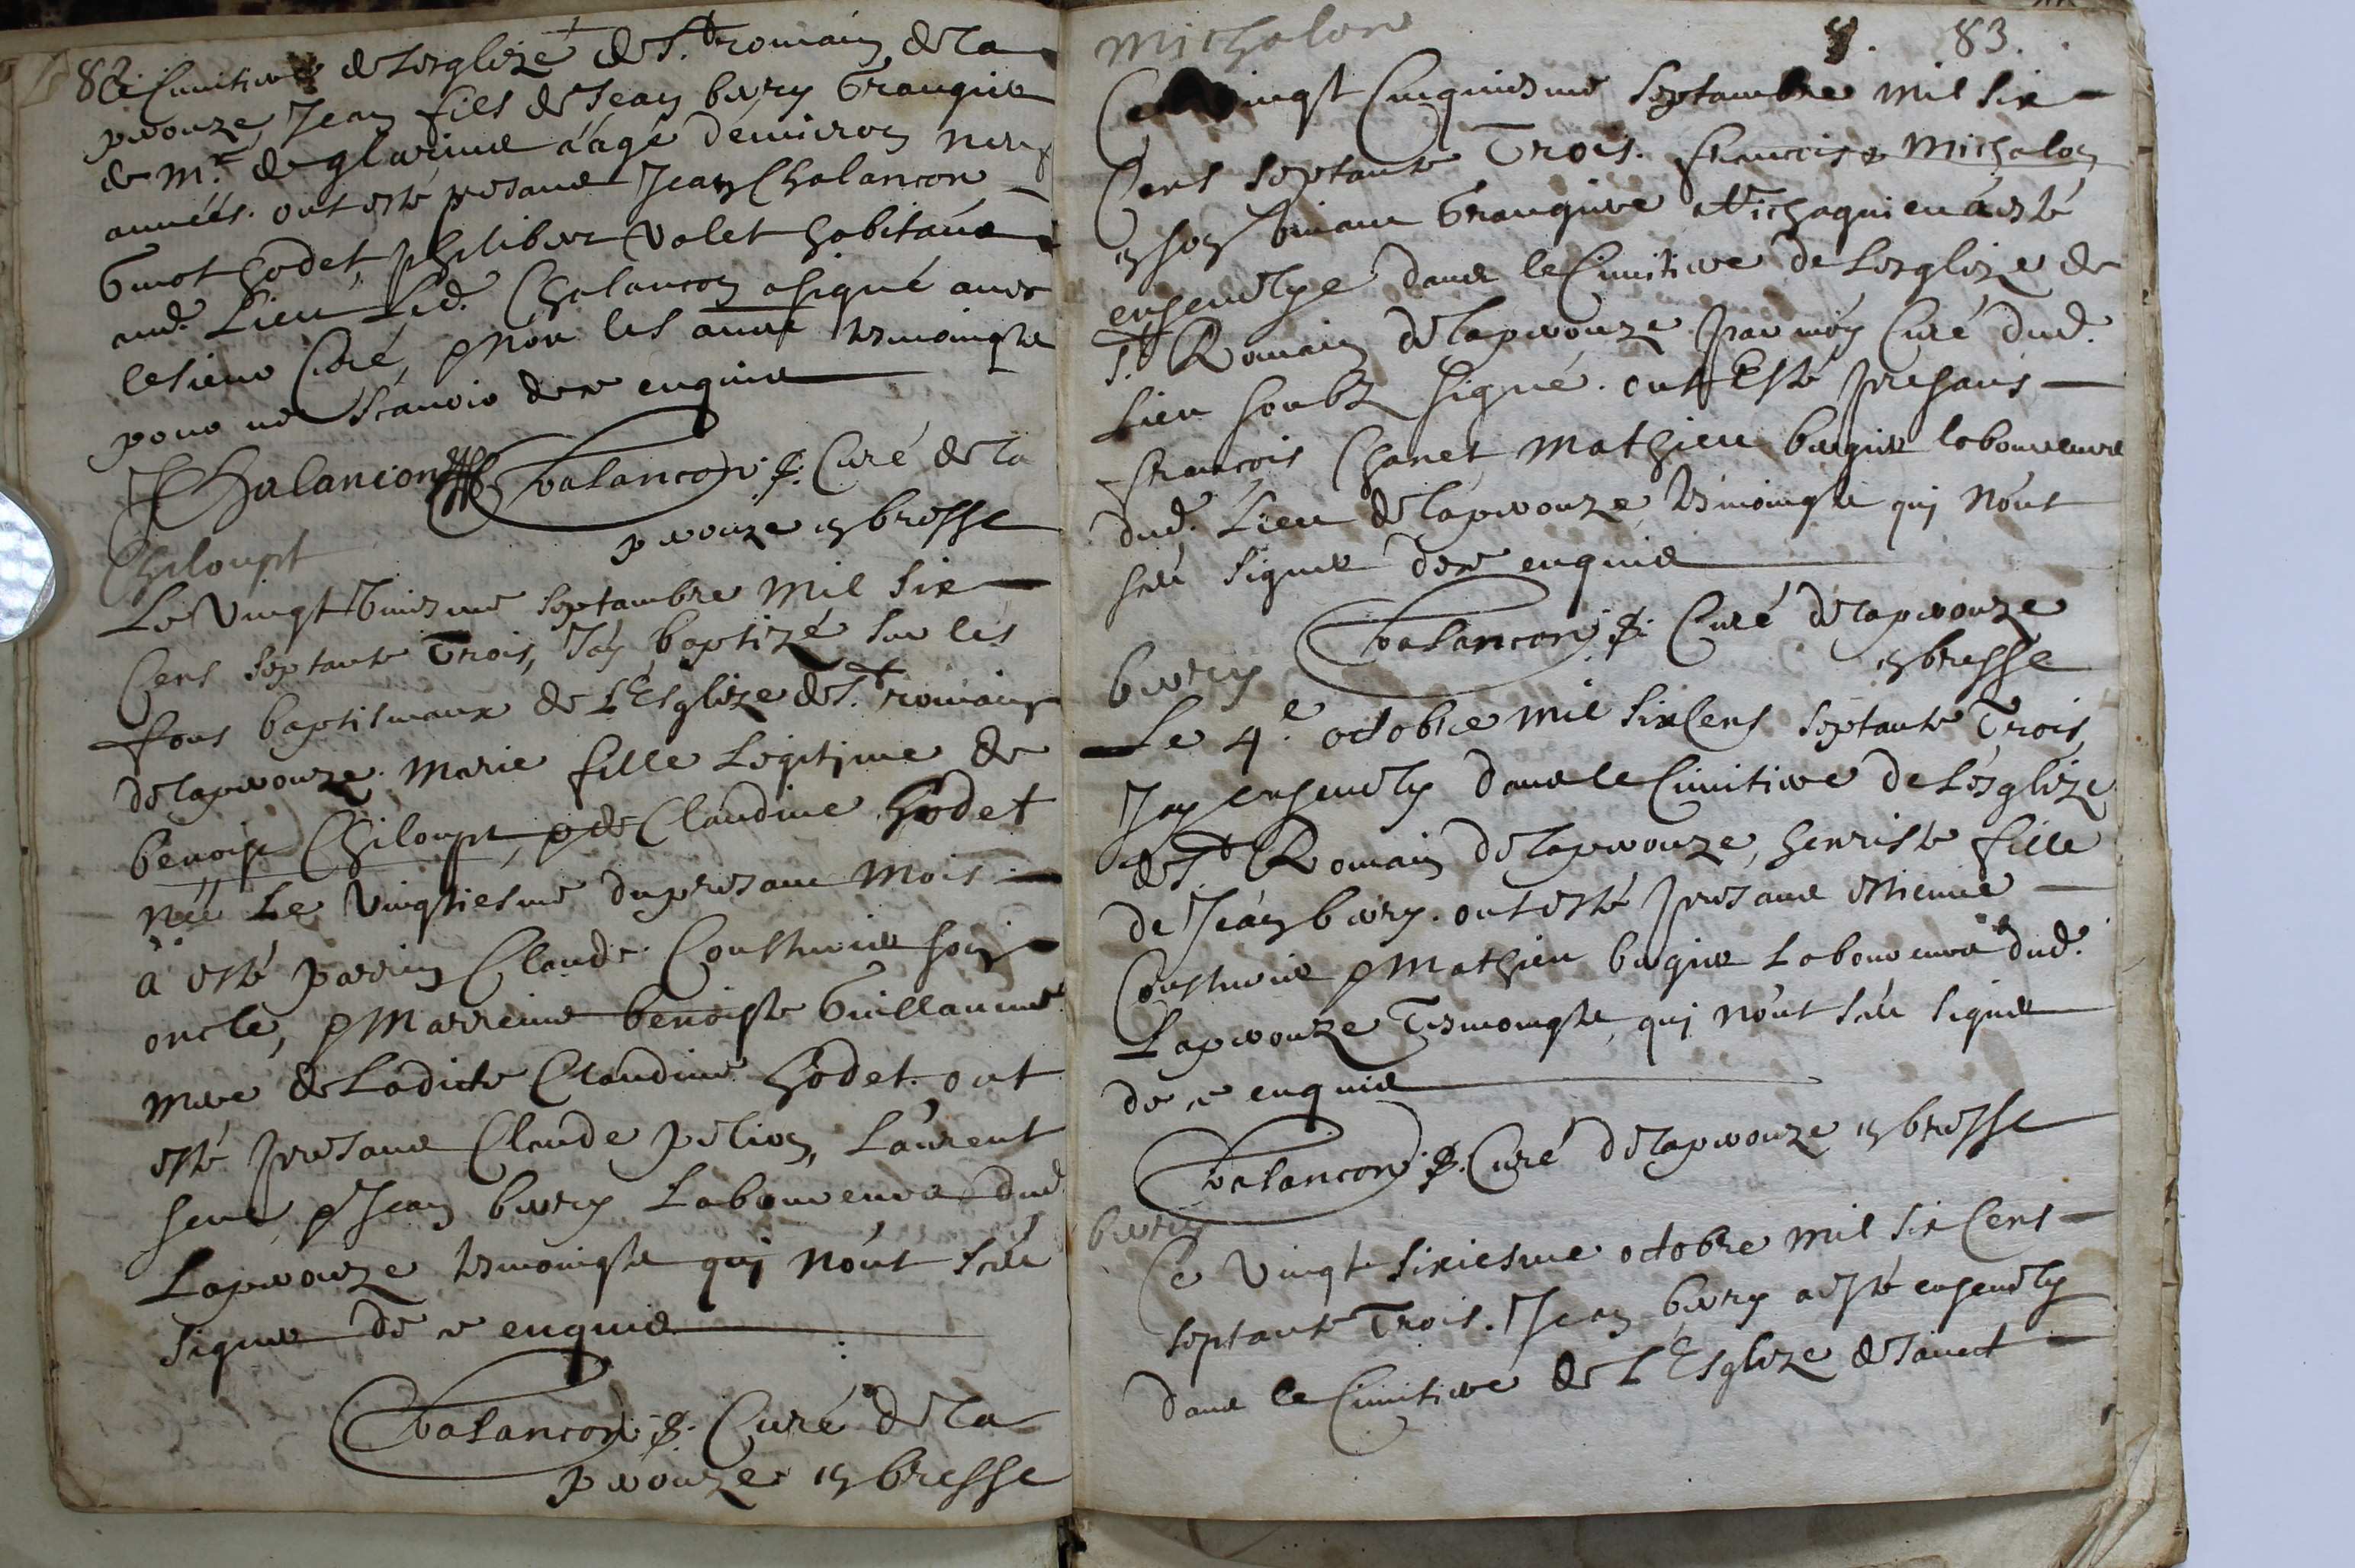 82
Cimitiere de Lesglize de St. romain de La
perouze, Jean fils de Jean bery Grangier
de Mr. de glarine áagé d'environ neuf
années. ont esté presans Jean Chalancon
hodet, philibert Valet habitans
aud. Lieu Led. Chalancon a signé avec
le sieur Curé, & non les autres tesmoingts
pour ne scavoir de ce enquis
JChalancon Chalancon p. Curé de La
perouze en bresse
Chiloupt
Le Vingt huitiesme septambre mil six
Cens septante Trois, J'ay baptizé sur les
fons baptismaux de L'Esglize de St. romain
de Laperouze. Marie fille Legitime de
benoist Chiloupt, & de Claudine hodet
née Le Vingtiesme du presant mois
a esté parrin Claude Cousturier son
oncle, & Marreine benoiste Guillaume
mere de Ladicte Claudine hodet. ont
esté presans Claude pelion, Laurent
& Jean bery Laboureurs dud.
Laperouze tesmoingts qui n'ont sceu
signer de ce enquis
Chalancon p. Curé de La
perouze en bresse
Michalon
8. 83.
Ce Vingt Cinquiesme Septambre mil six
Cens septante Trois. francoise Michalon
en son vivant Grangiere a esté
ensevelye dans le Cimitiere de Lesglize de
St. Romain de Laperouze par moy Curé dud.
Lieu soubz signé. ont Esté presans
francois Chanet Mathieu bergier laboureurs
dud. Lieu de Laperouze, tesmoingts qui n'ont
sceu signer de ce enquis
Chalancon p. Curé de Laperouze
en bresse
bery
Le 4.e octobre mil six Cens septante Trois,
J'ay ensevely dans le Cimitiere de L'esglize
de St Romain de Laperouze, henriste fille
de Jean bery. ont esté presans estienne
Cousturier & Mathieu bergier Laboureurs dud.
Laperouze Tesmoingts, qui n'ont sceu signer
de ce enquis
Chalancon p. Curé de Laperouze en bresse
bery
Ce Vingt sixiesme octobre mil six Cens
septante Trois. Jean bery a esté ensevely
dans le Cimitiere de L'Esglize de sainct